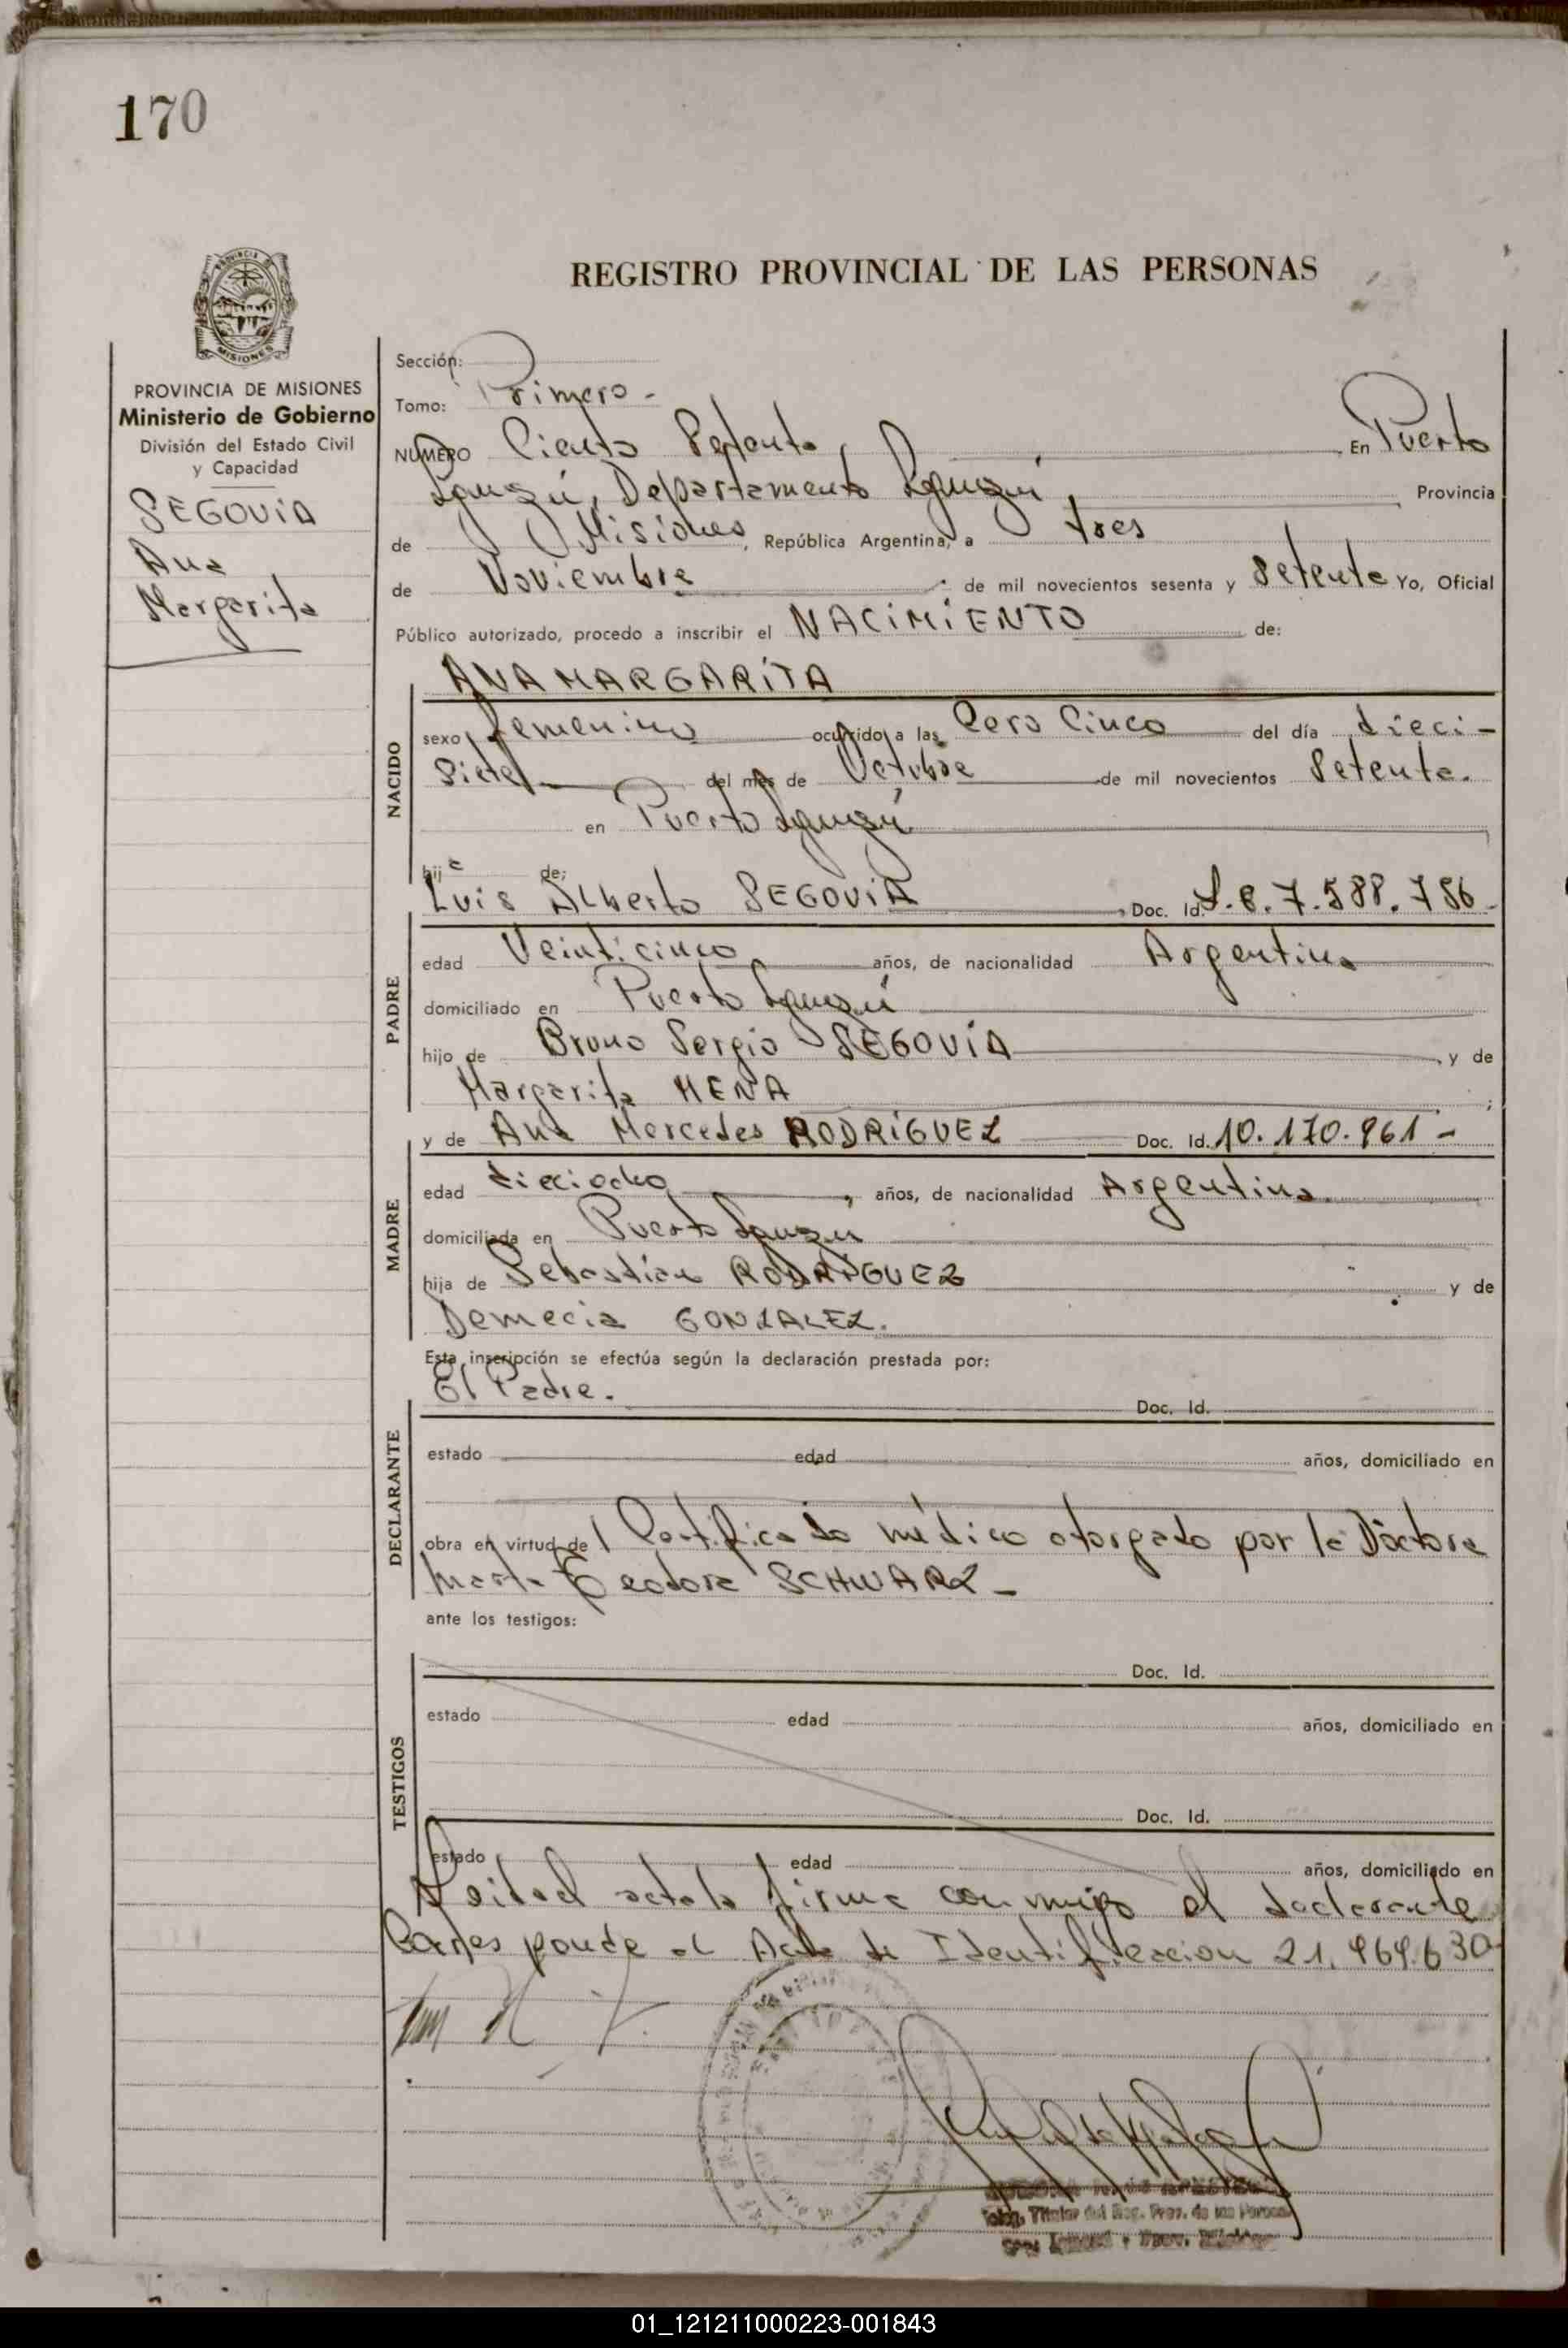 170
REGISTRO PROVINCIAL DE LAS PERSONAS
PROVINCIA DE MISIONES
MISIONES
PROVINCIA DE MISIONES
Ministerio de Gobierno
División del Estado Civil
y Capacidad
SEGOVIA
Ana
Margarita
Sección:
Tomo: Primero -
NUMERO Ciento Setenta, En Puerto
Iguazú, Departamento Iguazú, Provincia
de Misiones, República Argentina, a tres
de Noviembre de mil novecientos sesenta y Setenta Yo, Oficial
Público autorizado, procedo a inscribir el NACIMIENTO de:
ANA MARGARITA
NACIDO
sexo femenino ocurrido a las Cero Cinco del día dieci-
siete del mes de Octubre de mil novecientos Setenta.
en Puerto Iguazú
hija de:
Luis Alberto SEGOVIA, Doc. Id. L.E. 7.588.786-
PADRE
edad Veinticinco años, de nacionalidad Argentina
domiciliado en Puerto Iguazú
hijo de Bruno Sergio SEGOVIA, y de
Margarita MENA ;
y de Ana Mercedes RODRIGUEZ Doc. Id. 10.170.961-
MADRE
edad dieciocho, años, de nacionalidad Argentina
domiciliada en Puerto Iguazú
hija de Sebastian RODRIGUEZ y de
Demecia GONZALEZ.
Esta inscripción se efectúa según la declaración prestada por:
El Padre. Doc. Id.
DECLARANTE
estado edad años, domiciliado en
obra en virtud del Certificado médico otorgado por la Doctora
Marta Teodora SCHWARZ -
ante los testigos:
Doc. Id.
TESTIGOS
estado edad años, domiciliado en
Doc. Id.
estado edad años, domiciliado en
Leida el acta la firma conmigo el declarante
Corresponde el Acta de Identificacion 21.969.630-
Titular del Reg. Prov. de las Personas
01_121211000223-001843